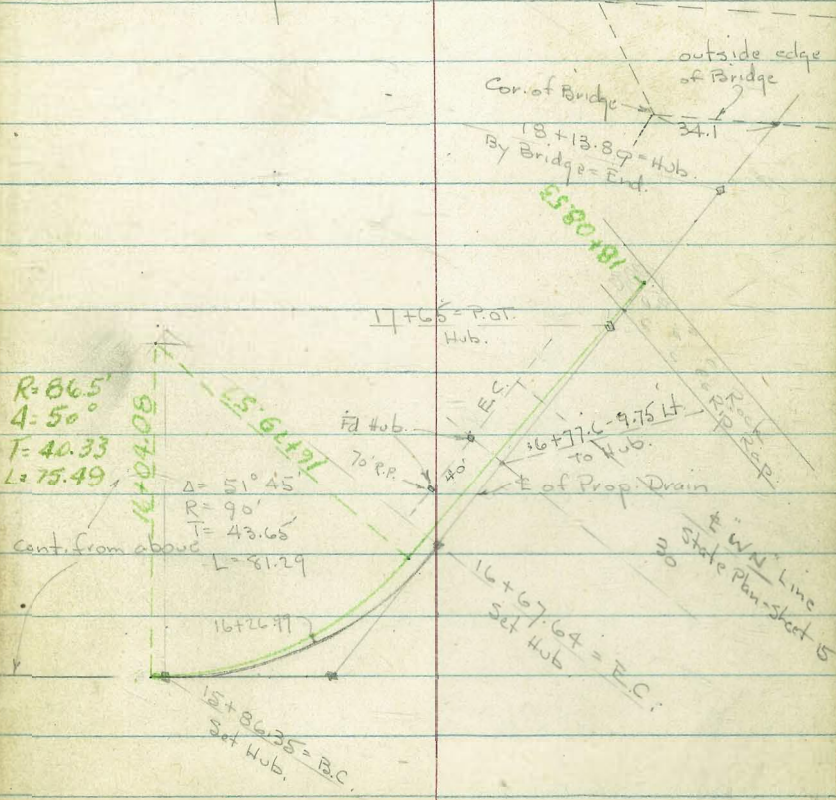 outside edge
of Bridge
Cor. of Bridge
34.1
18+13.89 = Hub.
By Bridge = End.
18+08.53
17+65 = P.O.T.
Hub.
R= 86.5'
Δ= 50°
T= 40.33
L= 75.49
16+79.57
E.C.
Fd Hub.
70' P.P.
40'
16+77.6 - 9.75 Lt.
to Hub.
Rock
Rip Rap
℄ of Prop. Drain
Δ= 51° 45'
R= 90'
T= 43.65'
L= 81.29
cont. from above
℄ "WN" Line
State Plan-sheet 15
30
16+67.64 = E.C.
Set Hub
15+86.35 = B.C.
Set Hub.